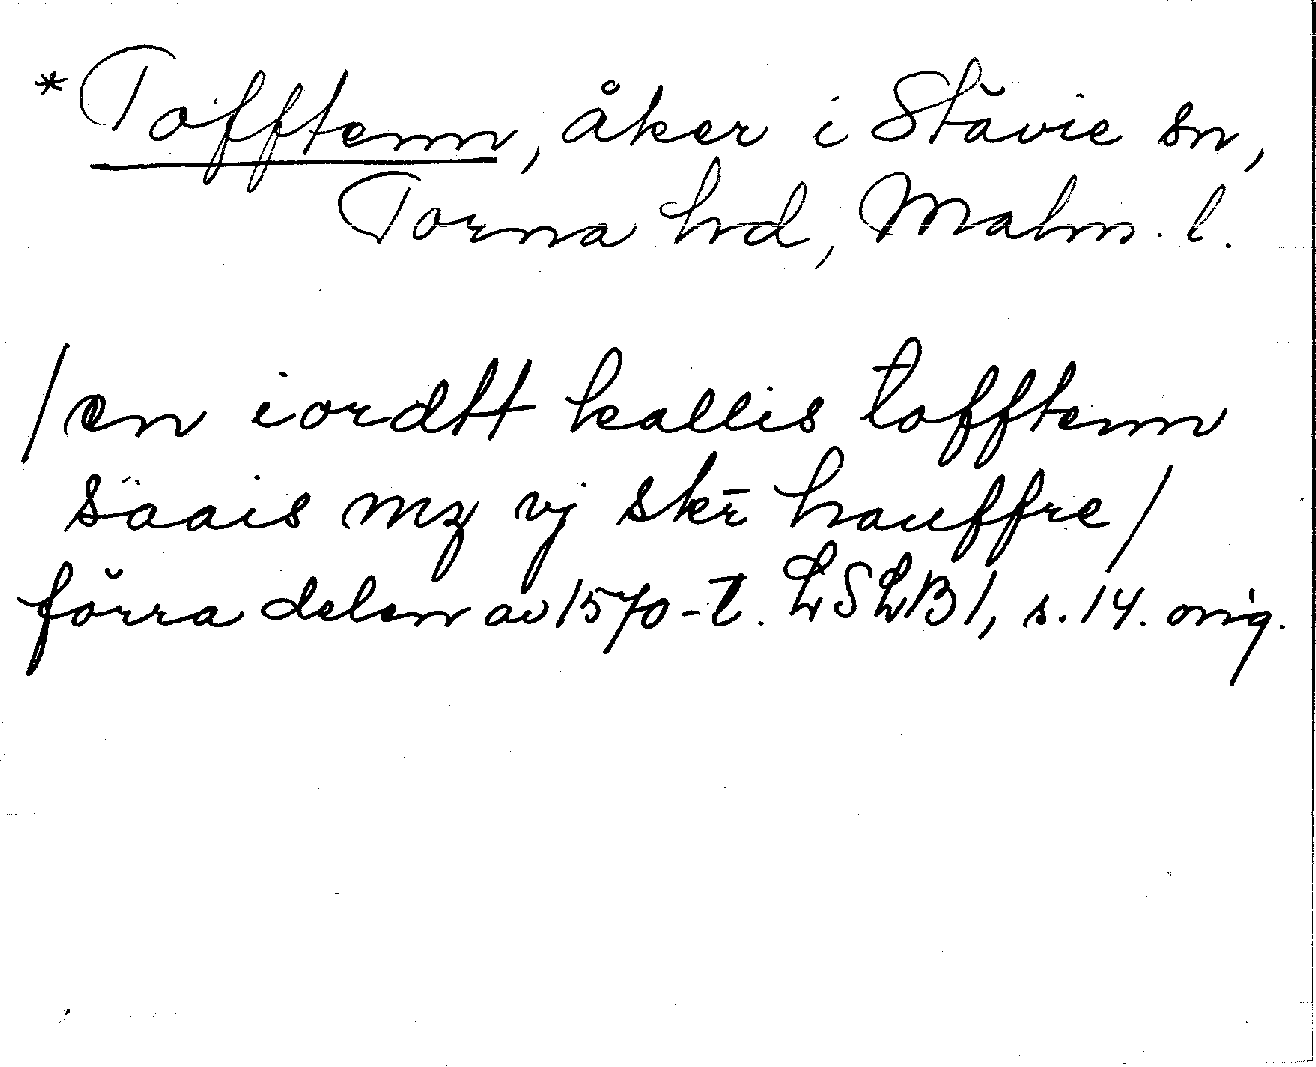 *Tofftenn, åker i Stävie sn,
Torna hd, Malm. l.
/en iordtt kallis tofftenn
säais mz vj skr̄ hauffre/
förra delen av 1570-t. LSLB1, s. 14. orig.